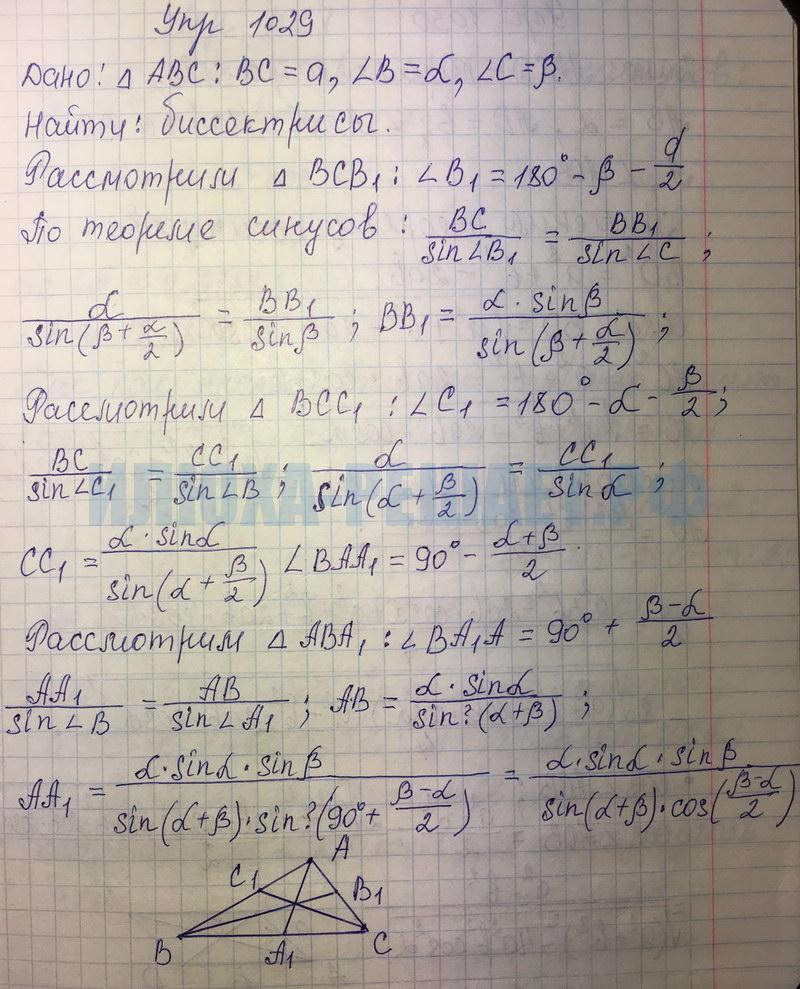 Упр 1029
Дано: △ ABC: BC = a, ∠B = α, ∠C = β.
Найти: биссектрисы.
Рассмотрим △ BCB₁: ∠B₁ = 180° - β - α/2
По теореме синусов: BC/sin∠B₁ = BB₁/sin∠C;
α/sin(β + α/2) = BB₁/sinβ; BB₁ = α · sinβ/sin(β + α/2);
Рассмотрим △ BCC₁: ∠C₁ = 180° - α - β/2;
BC/sin∠C₁ = CC₁/sin∠B; α/sin(α + β/2) = CC₁/sinα;
ИЛЮХА-РЕШАЕТ.РФ
CC₁ = α · sinα/sin(α + β/2) ∠BAA₁ = 90° - α+β/2.
Рассмотрим △ ABA₁: ∠BA₁A = 90° + β-α/2
AA₁/sin∠B = AB/sin∠A₁; AB = α · sinα/sin?(α+β);
AA₁ = α·sinα·sinβ/sin(α+β)·sin?(90°+ β-α/2) = α·sinα·sinβ/sin(α+β)·cos(β-α/2)
A
C₁
B₁
B
A₁
C